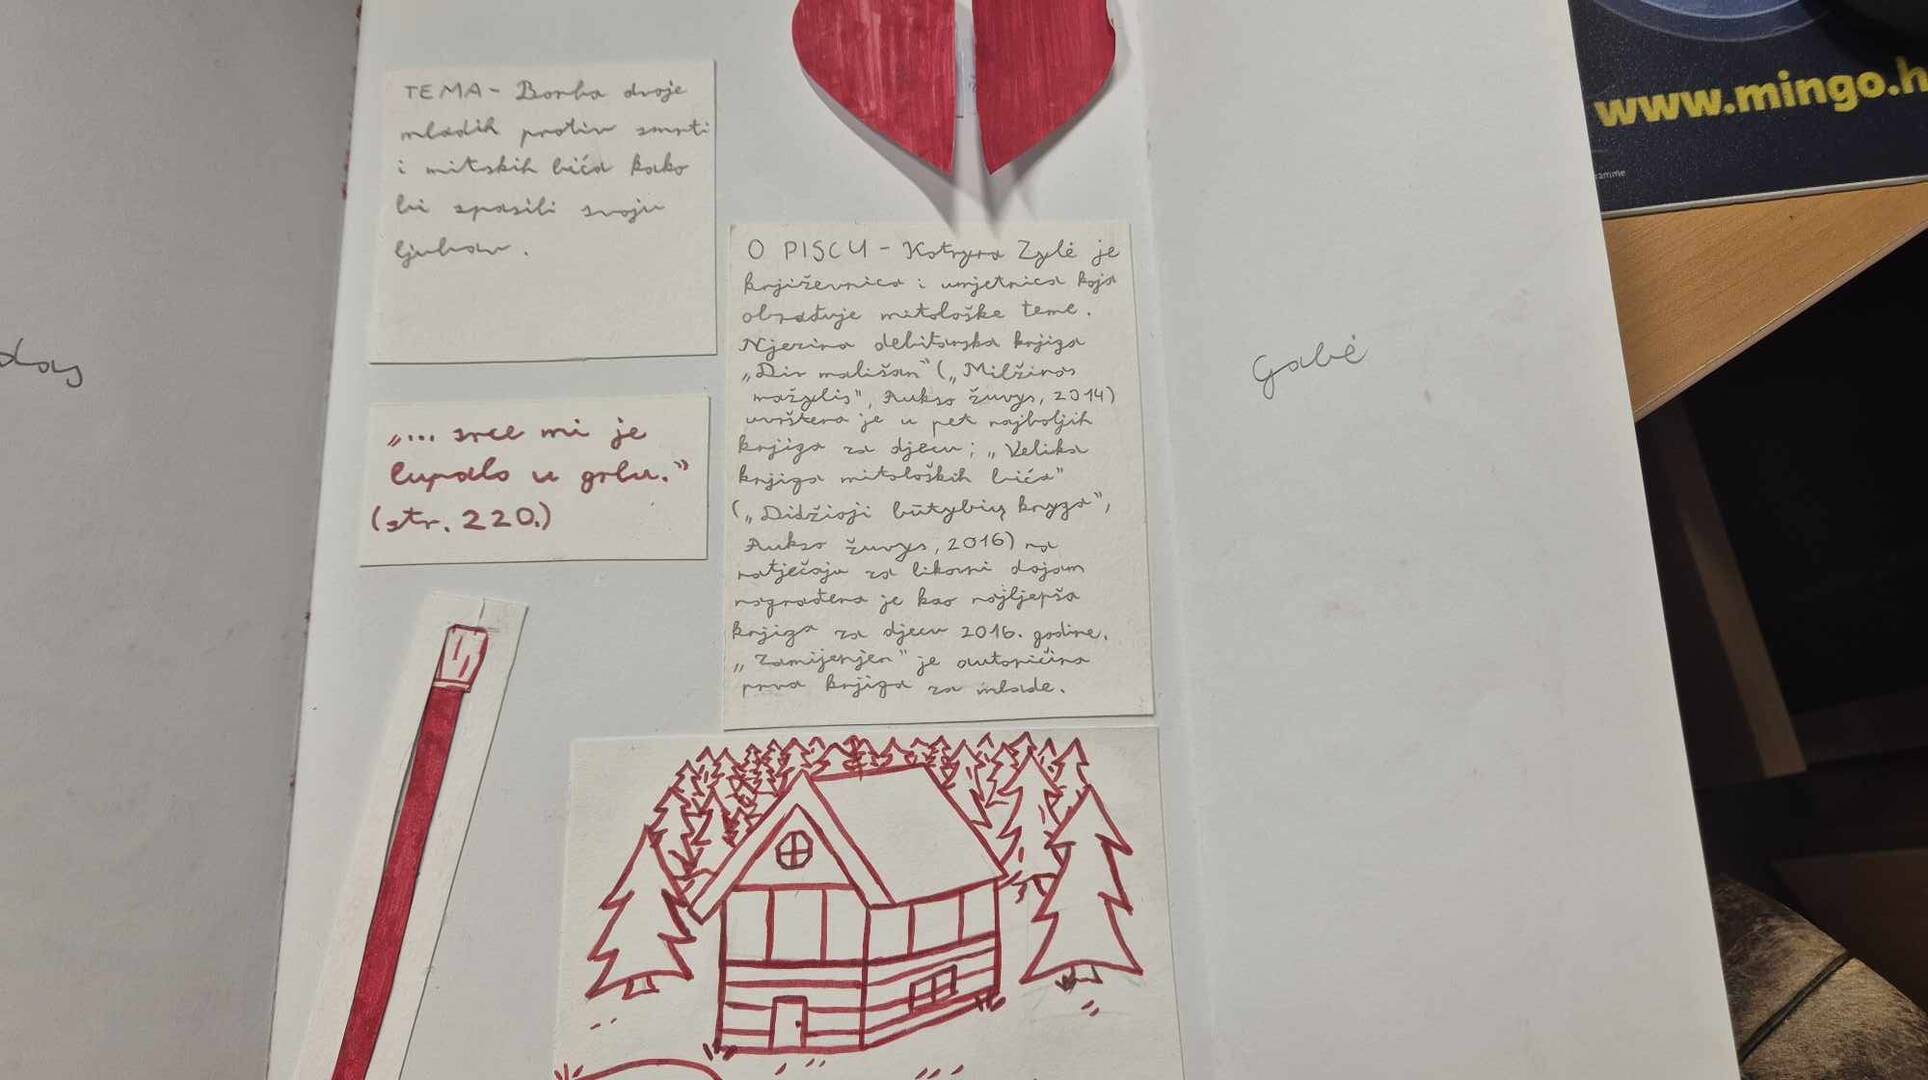 TEMA - Borba dvoje
mladih protiv smrti
i mitskih bića kako
bi spasili svoju
ljubav.
„... srce mi je
lupalo u grlu.”
(str. 220.)
O PISCU - Kotryna Zylė je
književnica i umjetnica koja
obrađuje mitološke teme.
Njezina debitanska knjiga
„Div mališan” („Milžinas
mažylis”, Aukso žuvys, 2014)
uvrštena je u pet najboljih
knjiga za djecu; „Velika
knjiga mitoloških bića”
(„Didžioji būtybių knyga”,
Aukso žuvys, 2016) na
natječaju za likovni dojam
nagrađena je kao najljepša
knjiga za djecu 2016. godine.
„Zamijenjen” je autoričina
prva knjiga za mlade.
das
Gabė
www.mingo.h
ramme